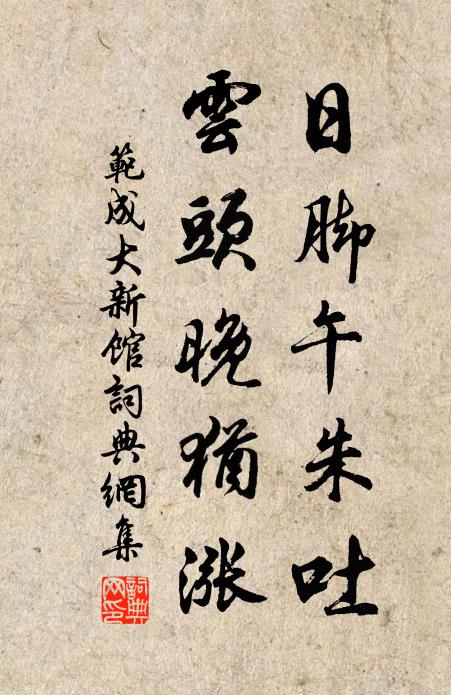 日脚午朱吐
雲頭晚猶漲
範成大新館詞典網集
詞典網印